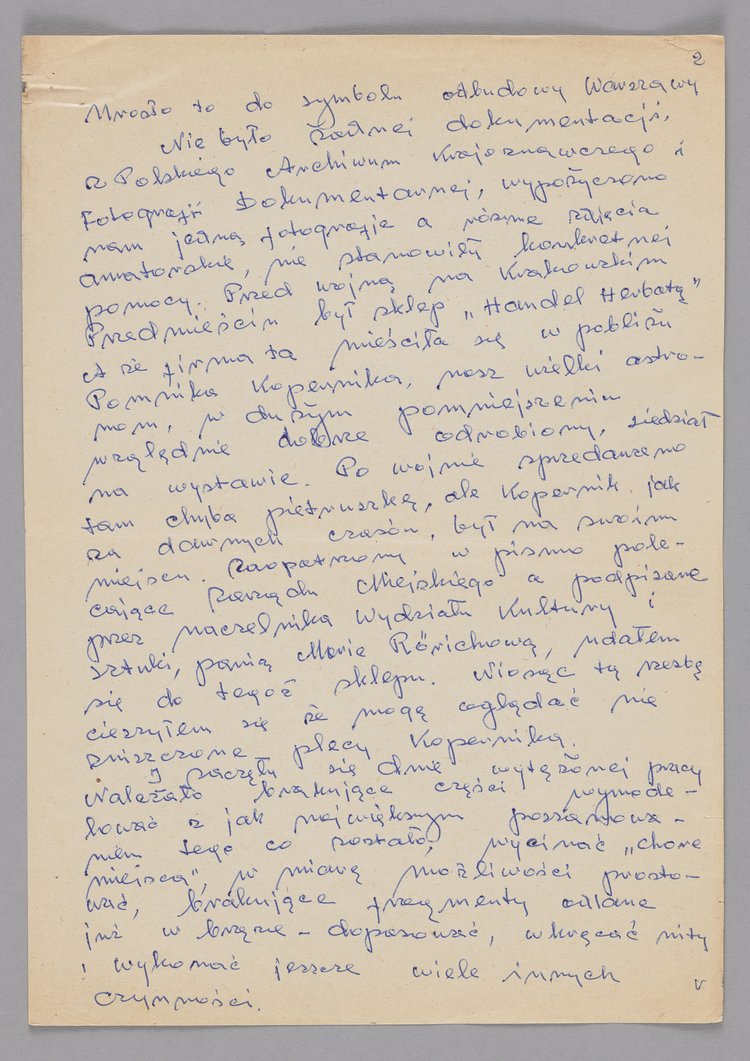 2
Urosło to do symbolu odbudowy Warszawy
Nie było żadnej dokumentacji,
z Polskiego Archiwum Krajoznawczego i
Fotografii Dokumentarnej, wypożyczono
nam jedną fotografie a różne zdjęcia
amatorskie, nie stanowiły konkretnej
pomocy. Przed wojną na Krakowskim
Przedmieściu był sklep „Handel Herbatą”
A że firma ta mieściła się w pobliżu
Pomnika Kopernika, nasz wielki astro-
nom, w dużym pomniejszeniu
względnie dobrze odrobiony, siedział
na wystawie. Po wojnie sprzedawano
tam chyba pietruszkę, ale Kopernik jak
za dawnych czasów, był na swoim
miejscu. Zaopatrzony w pismo pole-
cające Zarządu Miejskiego a podpisane
przez naczelnika Wydziału Kultury i
Sztuki, panią Marie Rörichową, udałem
się do tegoż sklepu. Niosąc tą rzeźbę
cieszyłem się że mogę oglądać nie
zniszczone plecy Kopernika.
I zaczęły się dnie wytężonej pracy
Należało brakujące części wymode-
lować z jak największym poszanowa-
niem tego co zostało, wycinać „chore
miejsca”, w miarę możliwości prosto-
wać, brakujące fragmenty odlane
już w brązie – dopasować, wkręcać nity
i wykonać jeszcze wiele innych
czynności.
v